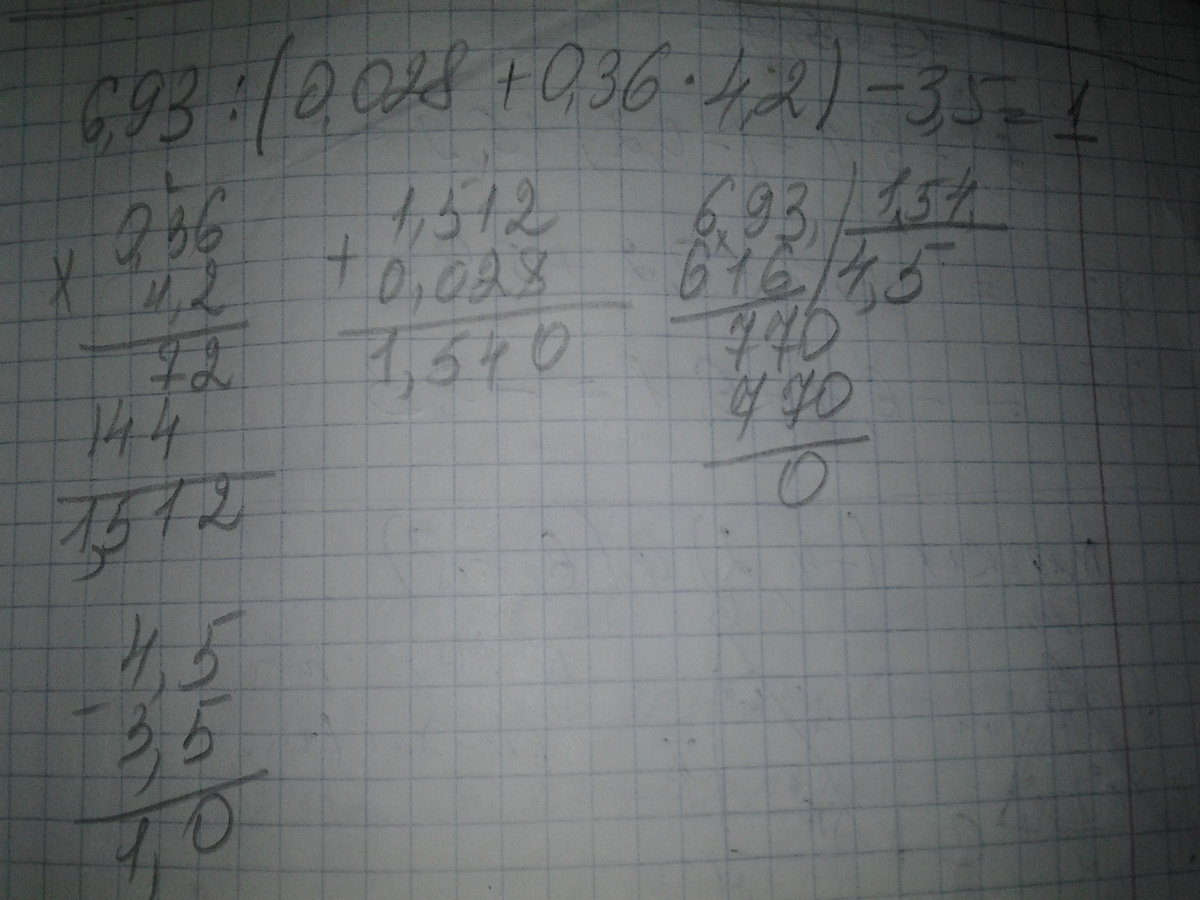 6,93 : (0,028 + 0,36 · 4,2) - 3,5 = 1
0,36
x 4,2
72
144
1,512
1,512
+ 0,028
1,540
6,93, | 1,54,
616 | 4,5
770
770
0
4,5
- 3,5
1,0